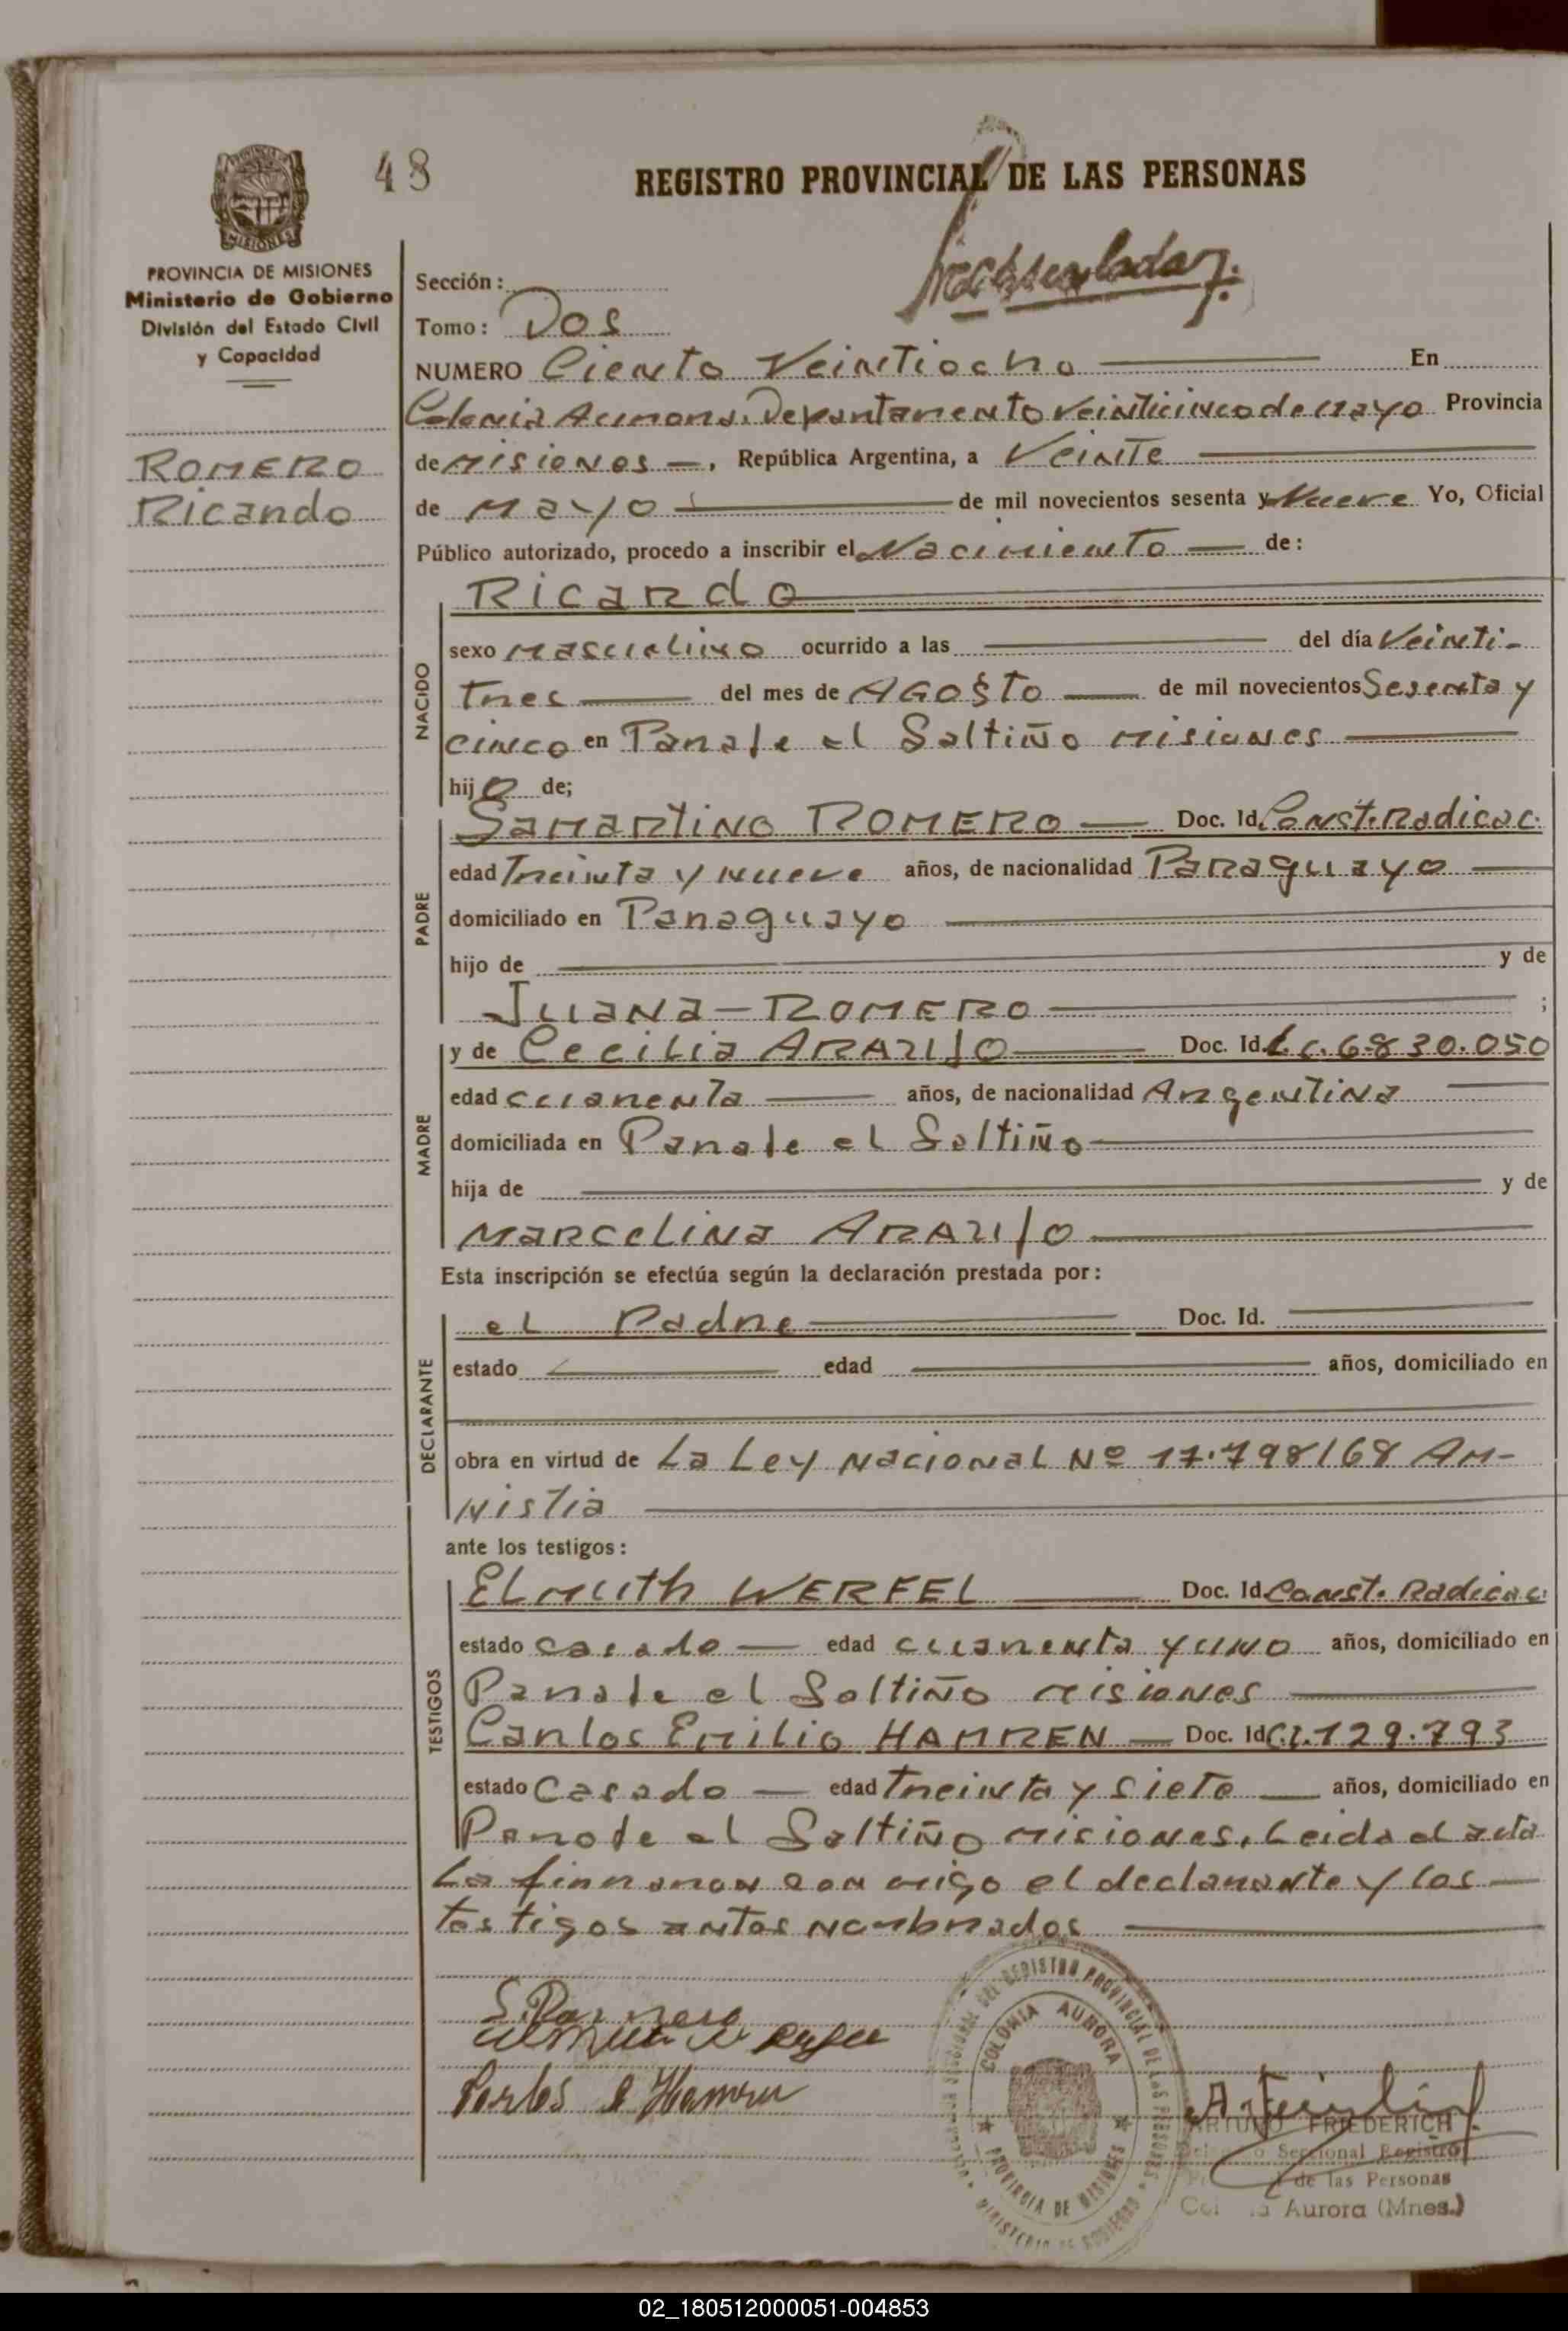 48
REGISTRO PROVINCIAL DE LAS PERSONAS
PROVINCIA DE MISIONES
MISIONES
PROVINCIA DE MISIONES
Ministerio de Gobierno
División del Estado Civil
y Capacidad
ROMERO
Ricardo
Sección:
Tomo: Dos
NUMERO Ciento Veintiocho En
Colonia Aurora. Departamento Veinticinco de Mayo Provincia
de Misiones, República Argentina, a Veinte
de Mayo de mil novecientos sesenta y Nueve Yo, Oficial
Público autorizado, procedo a inscribir el Nacimiento de:
NACIDO
Ricardo
sexo masculino ocurrido a las del día Veinti-
tres del mes de AGOSTO de mil novecientos Sesenta y
cinco en Paraje el Saltiño Misiones
hijo de;
PADRE
Samartino ROMERO Doc. Id. Const. Radicac.
edad Treinta y nueve años, de nacionalidad Paraguayo
domiciliado en Paraguayo
hijo de y de
Juana - ROMERO ;
MADRE
y de Cecilia ARAUJO Doc. Id. L.C. 6.830.050
edad cuarenta años, de nacionalidad Argentina
domiciliada en Paraje el Saltiño
hija de y de
Marcelina ARAUJO
Esta inscripción se efectúa según la declaración prestada por:
DECLARANTE
el Padre Doc. Id.
estado edad años, domiciliado en
obra en virtud de La Ley Nacional Nº 17.798/68 AM-
NISTIA
ante los testigos:
TESTIGOS
ELMUTH WERFEL Doc. Id. Const. Radicac.
estado casado edad cuarenta y uno años, domiciliado en
Paraje el Saltiño Misiones
Carlos Emilio HAMREN Doc. Id C.I. 129.793
estado Casado edad Treinta y Siete años, domiciliado en
Paraje el Saltiño Misiones. Leida el acta
La firmaron con migo el declarante y los
testigos antes nombrados
S. Romero
Carlos E Hamren
REGISTRO PROVINCIAL DE LAS PERSONAS
COLONIA AURORA
PROVINCIA DE MISIONES
MINISTERIO DE GOBIERNO
ARTURO FRIEDERICH
Seccional Registro
de las Personas
Aurora (Mnes.)
02_180512000051-004853